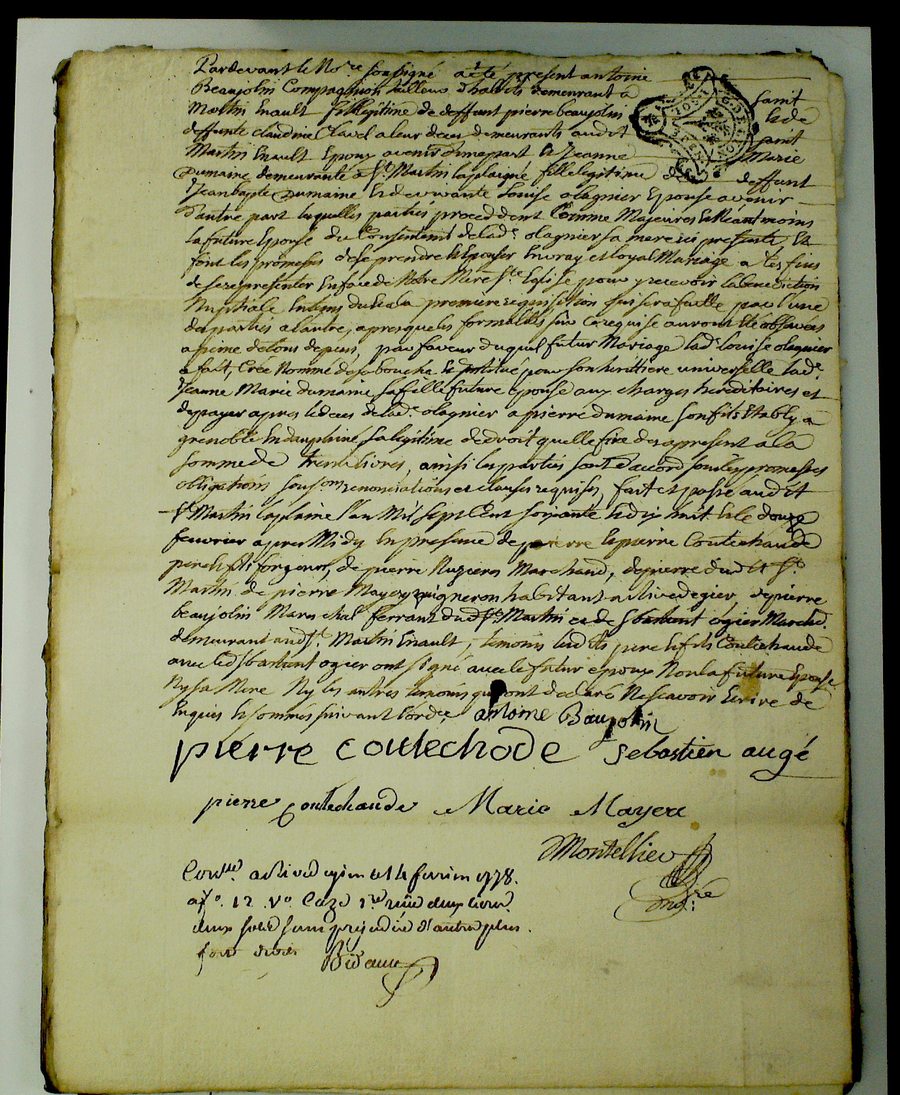 Pardevant le No.re soussigné a été present antoine
Beaujolin Compagnon tailleur d'habits demeurant a saint
Martin Enault fils legitime de deffunt pierre beaujolin et de
deffunte claudine Clavel a leur deces demeurants audit saint
Martin Enault Epoux avenir d'une part Et Jeanne Marie
Dumaine demeurante a St. Martin la plaigne fille legitime de deffunt
Jean bapte Dumaine Et de vivante Louise olagnier Epouse avenir
d'autre part lesquelles parties procedent Comme Majeures Et Neantmoins
la future Epouse du Consentemt. de lade. olagnier sa mere ici presente, Et
font les promesses de se prendre Et Epouser En vray et loyal Mariage a tes fins
de se representer En face de Notre Mere Ste. Eglise pour y recevoir la benediction
Nuptiale En tems du Et a la premiere requisition qui sera faitte par l'une
des parties a l'autre, apres que les formalités sur ce requise auront Eté observées
a peine de tous depens, par faveur duquel futur Mariage lade. louise olagnier
a fait, Créé Nommé de sa bouche Et institué pour son herittiere universelle lade.
Jeanne Marie dumaine sa fille future Epouse aux charges hereditaires et
de payer apres le deces de lade. olagnier a pierre dumaine son fils Etably a
grenoble En dauphiné sa legitime de droit quelle fixe des apresent a la
somme de trente livres, ainsi les parties sont d'accord sous les promesses
obligations soumons. renonciations et clauses requises, fait et passé audit
St. Martin la plaine l'an Mil sept Cent soixante Et dix huit Et le douze
fevrier apres Midy En presence de pierre Et pierre Coutechaude
pere Et fils forgeurs, de pierre Marchand, de pierre dudit St.
Martin de pierre Mayery vigneron habitant a Rivedegier de pierre
beaujolin Marechal ferrant dud. St. Martin et de Sbastient ogier Marchd.
demeurant aud. St. Martin Enault, temoins lesdits pere Et fils Coutechaude
avec led. Sbastient ogier ont signé avec le futur epoux Non la future Epouse
Ny sa Mere Ny les autres temoins qui ont declaré Ne scavoir Ecrire de
Enquis Et sommés suivant l'orde. antoine Baujolin
pierre coutechode Sebastien augé
pierre Coutechaude Marie Mayere
Montellier
No.re
Conllé. a Rivedegier le 14 fevrier 1778.
a fo. 12 Vo. Caze 1re reçu deux livres
deux sols sans prejudice d'autre plus
fort droit Bidaut